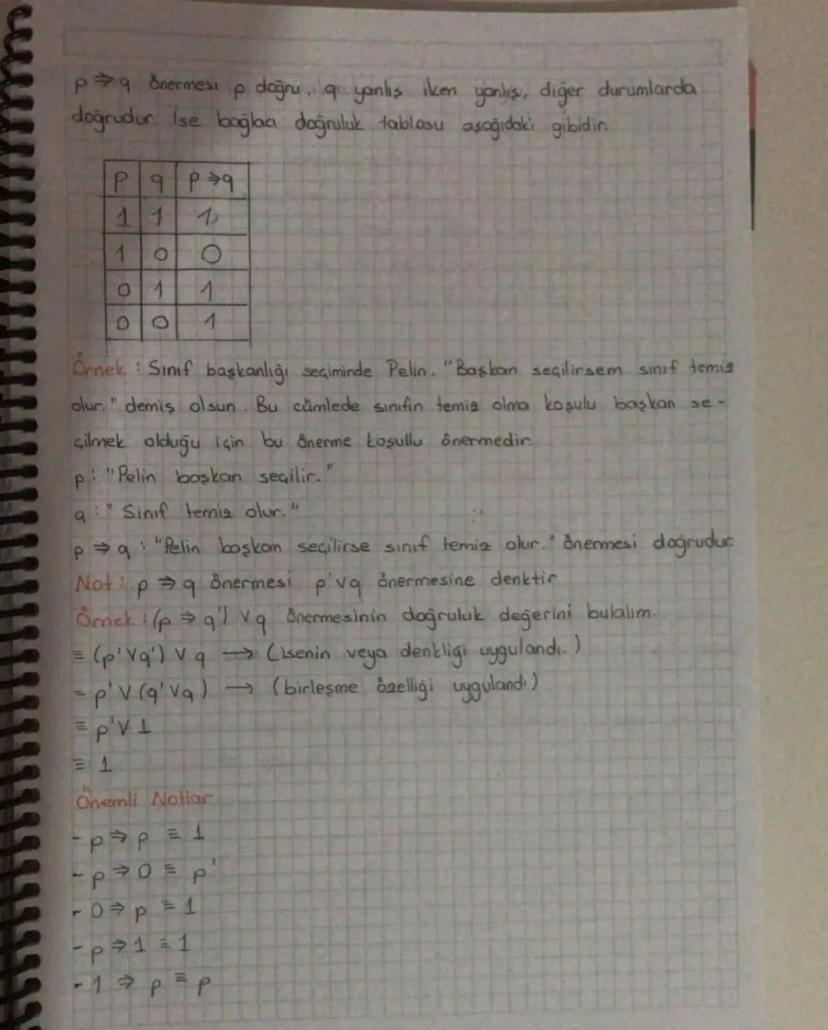 p ⇒ q önermesi p doğru, q yanlış iken yanlış, diğer durumlarda
doğrudur. İse bağlacı doğruluk tablosu aşağıdaki gibidir.
p q p ⇒ q
1 1 1
1 0 0
0 1 1
0 0 1
Örnek : Sınıf başkanlığı seçiminde Pelin, "Başkan seçilirsem sınıf temiz
olur." demiş olsun. Bu cümlede sınıfın temiz olma koşulu başkan se-
çilmek olduğu için bu önerme koşullu önermedir.
p : "Pelin başkan seçilir."
q : "Sınıf temiz olur."
p ⇒ q : "Pelin başkan seçilirse sınıf temiz olur." önermesi doğrudur.
Not : p ⇒ q önermesi p'∨q önermesine denktir
Örnek : (p ⇒ q') ∨ q önermesinin doğruluk değerini bulalım.
≡ (p'∨q') ∨ q → (isenin veya denkliği uygulandı.)
= p'∨(q'∨q) → (birleşme özelliği uygulandı)
≡ p'∨1
≡ 1
Önemli Notlar
- p ⇒ p ≡ 1
- p ⇒ 0 ≡ p'
- 0 ⇒ p ≡ 1
- p ⇒ 1 ≡ 1
- 1 ⇒ p ≡ p